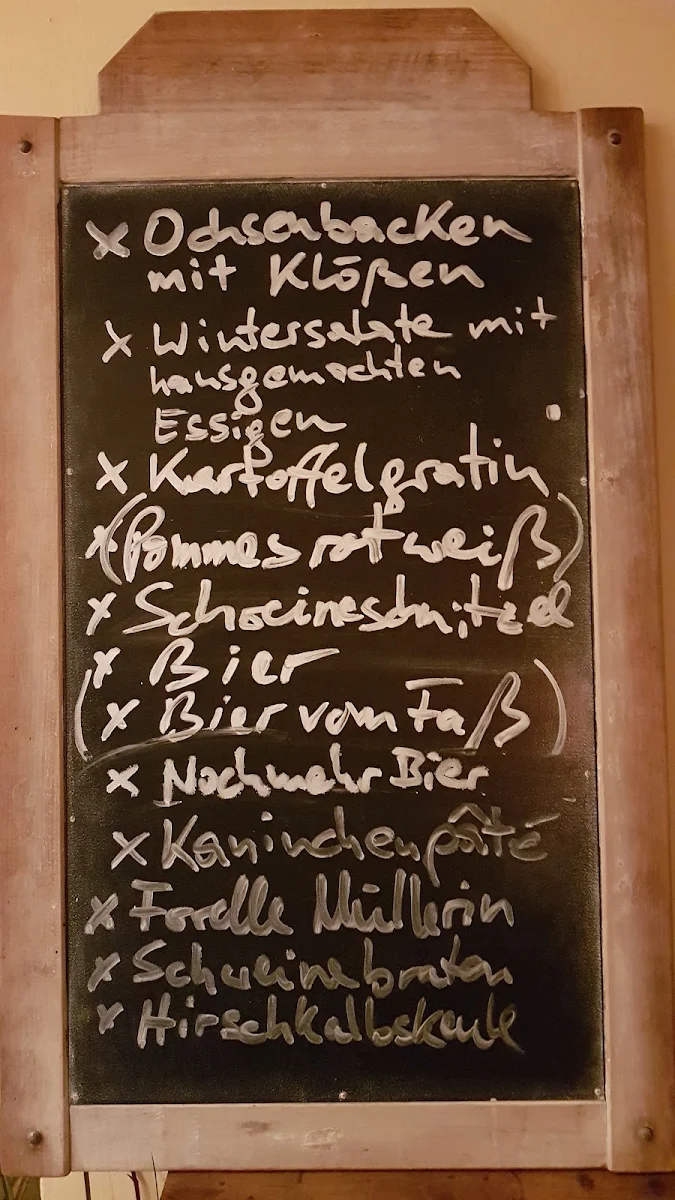 x Ochsenbacken
mit Klößen
x Wintersalate mit
hausgemachten
Essigen
x Kartoffelgratin
x (Pommes rot weiß)
x Schweineschnitzel
x Bier
(x Bier vom Faß)
x Noch mehr Bier
x Kaninchenpâté
x Forelle Müllerin
x Schweinebraten
x Hirschkalbskeule